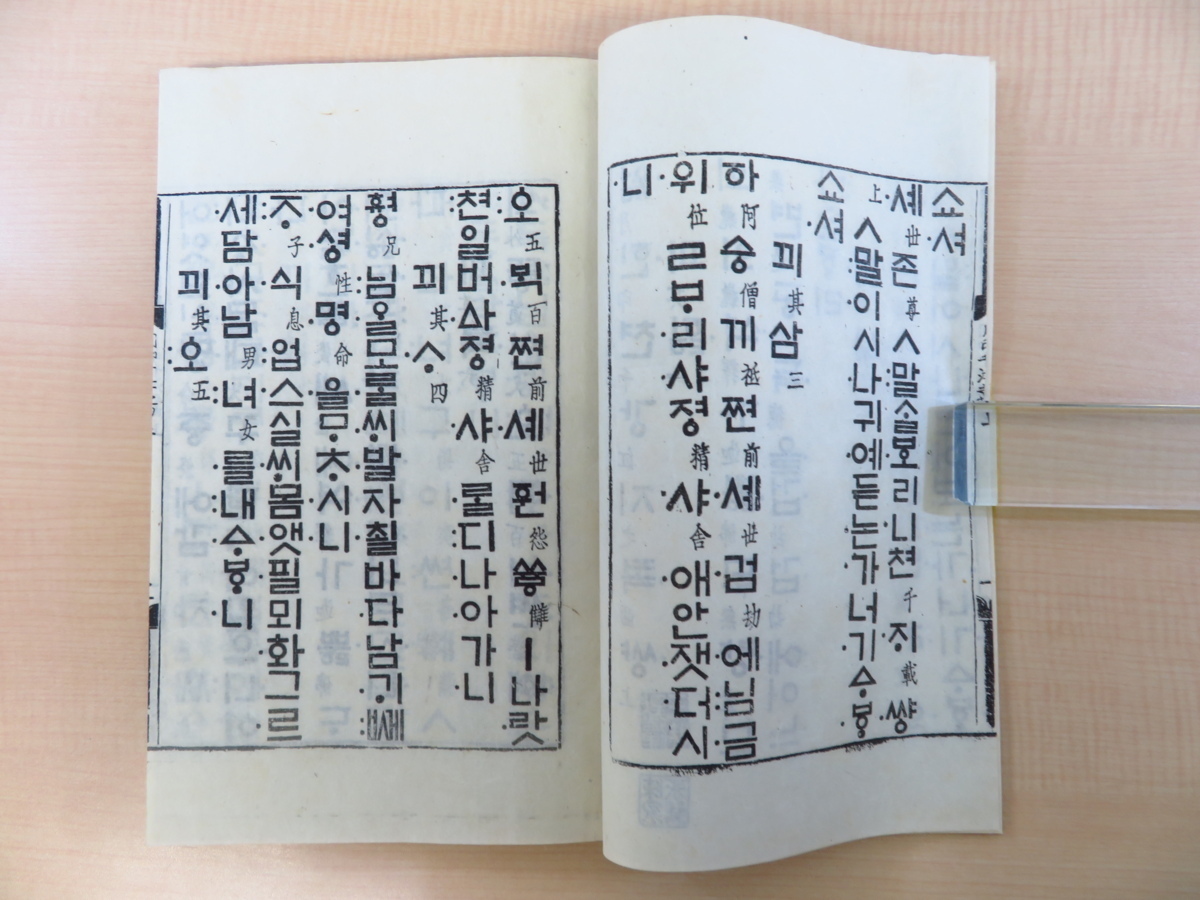 쇼셔
셰世존尊ㅅ말ᄉᆞᆯᄫᅩ리니쳔千ᄌᆡ載쌰ᇰ
上ㅅ말이시나귀예듣논가너기ᅀᆞᄫᆞ
쇼셔
끠其삼三
하阿승僧끼祇쪈前셰世겁劫에님금
위位ㄹᄇᆞ리샤져ᇰ精샤舍애안잿더시
니
오五ᄇᆡᆨ百쪈前셰世ᅙᅯᆫ怨쓔ᇢ讎ㅣ나랏
쳔일버ᅀᅡ져ᇰ精샤舍ᄅᆞᆯ디나아가니
끠其ᄉᆞ四
ᄒᆑᇰ兄님ᄋᆞᆯ모ᄅᆞᆯᄊᆡ발자쵤바다남ᄀᆡᄢᅦ
여셔ᇰ性며ᇰ命을ᄆᆞᄎᆞ시니
ᄌᆞ子식息업스실ᄊᆡ몸앳필뫼화그르
세담아남男녀女를내ᅀᆞᄫᆞ니
끠其오五